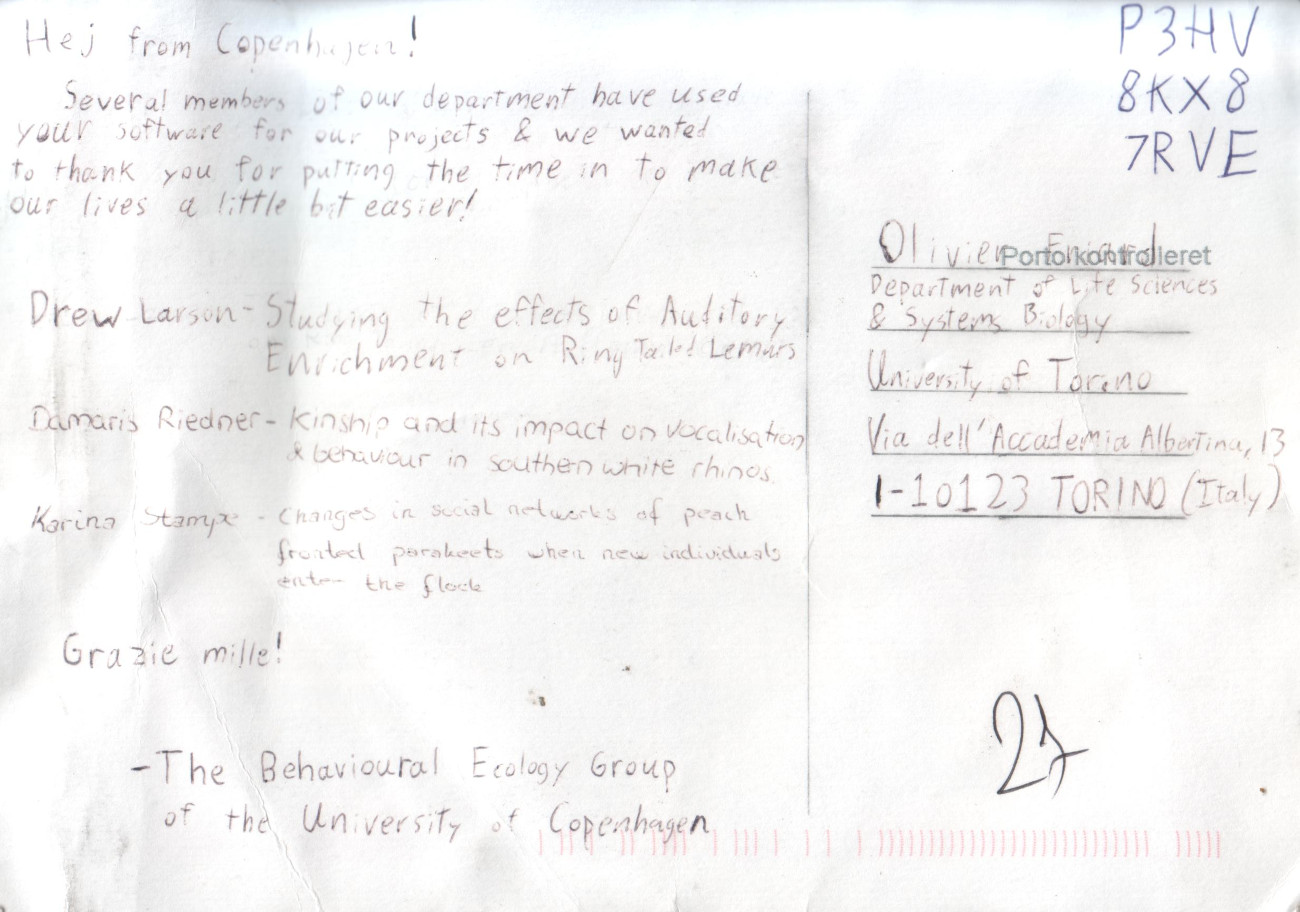 Hej from Copenhagen!
Several members of our department have used
your software for our projects & we wanted
to thank you for putting the time in to make
our lives a little bit easier!
Drew Larson - Studying the effects of Auditory
Enrichment on Ring Tailed Lemurs
Damaris Riedner - Kinship and its impact on vocalisation
& behaviour in southen white rhinos.
Karina - Changes in social networks of peach
fronted parakeets when new individuals
enter the flock
Grazie mille!
- The Behavioural Ecology Group
of the University of Copenhagen
P3HV
8KX8
7RVE
Olivier
Portokontrolleret
Department of Life Sciences
& Systems Biology
University of Torino
Via dell'Accademia Albertina, 13
I-10123 TORINO (Italy)